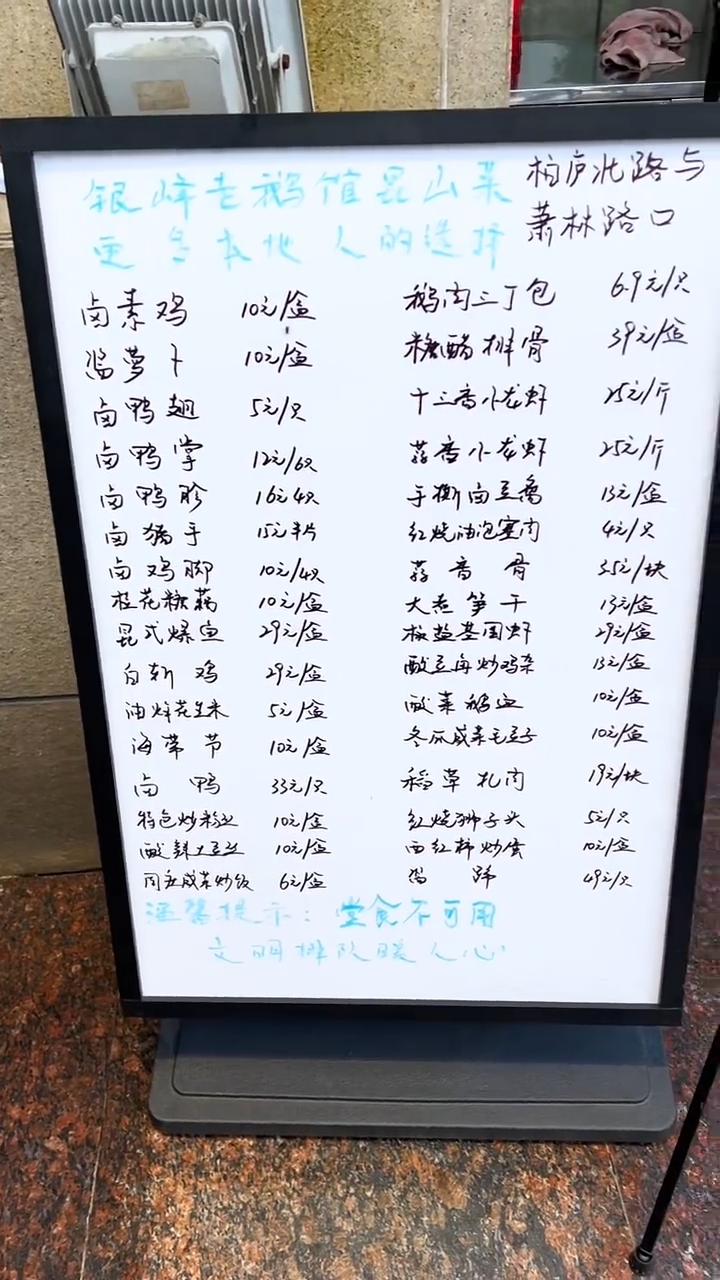 银峰老鹅馆昆山菜
更多本地人的选择
柏庐北路与
萧林路口
卤素鸡 10元/盒
酱萝卜 10元/盒
卤鸭翅 5元/只
卤鸭掌 12元/6只
卤鸭胗 16元4只
卤猪手 15元半片
卤鸡脚 10元/4只
桂花糖藕 10元/盒
昆式爆鱼 29元/盒
白斩鸡 29元/盒
油炸花生米 5元/盒
海带节 10元/盒
卤鸭 33元/只
特色炒粉丝 10元/盒
酸辣土豆丝 10元/盒
咸菜炒饭 6元/盒
鹅肉三丁包 6.9元/只
糖醋排骨 39元/盒
十三香小龙虾 25元/斤
蒜香小龙虾 25元/斤
手撕卤豆腐 13元/盒
红烧油泡塞肉 4元/只
蒜香骨 35元/块
大煮笋干 13元/盒
椒盐基围虾 29元/盒
酸豆角炒鸡杂 13元/盒
酸菜鹅血 10元/盒
冬瓜咸菜毛豆子 10元/盒
稻草扎肉 19元/块
红烧狮子头 5元/只
西红柿炒蛋 10元/盒
酱蹄 49元/只
温馨提示：堂食不可用
文明排队暖人心